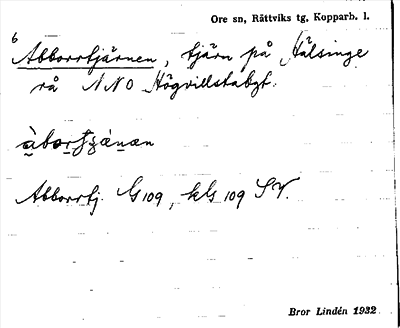 Ore sn, Rättviks tg, Kopparb. l.
6
Abborrtjärnen, tjärn på Hälsinge
rå NNO Högvillstabgt.
Abborrtj. G 109, kG 109 SV.
Bror Lindén 1932